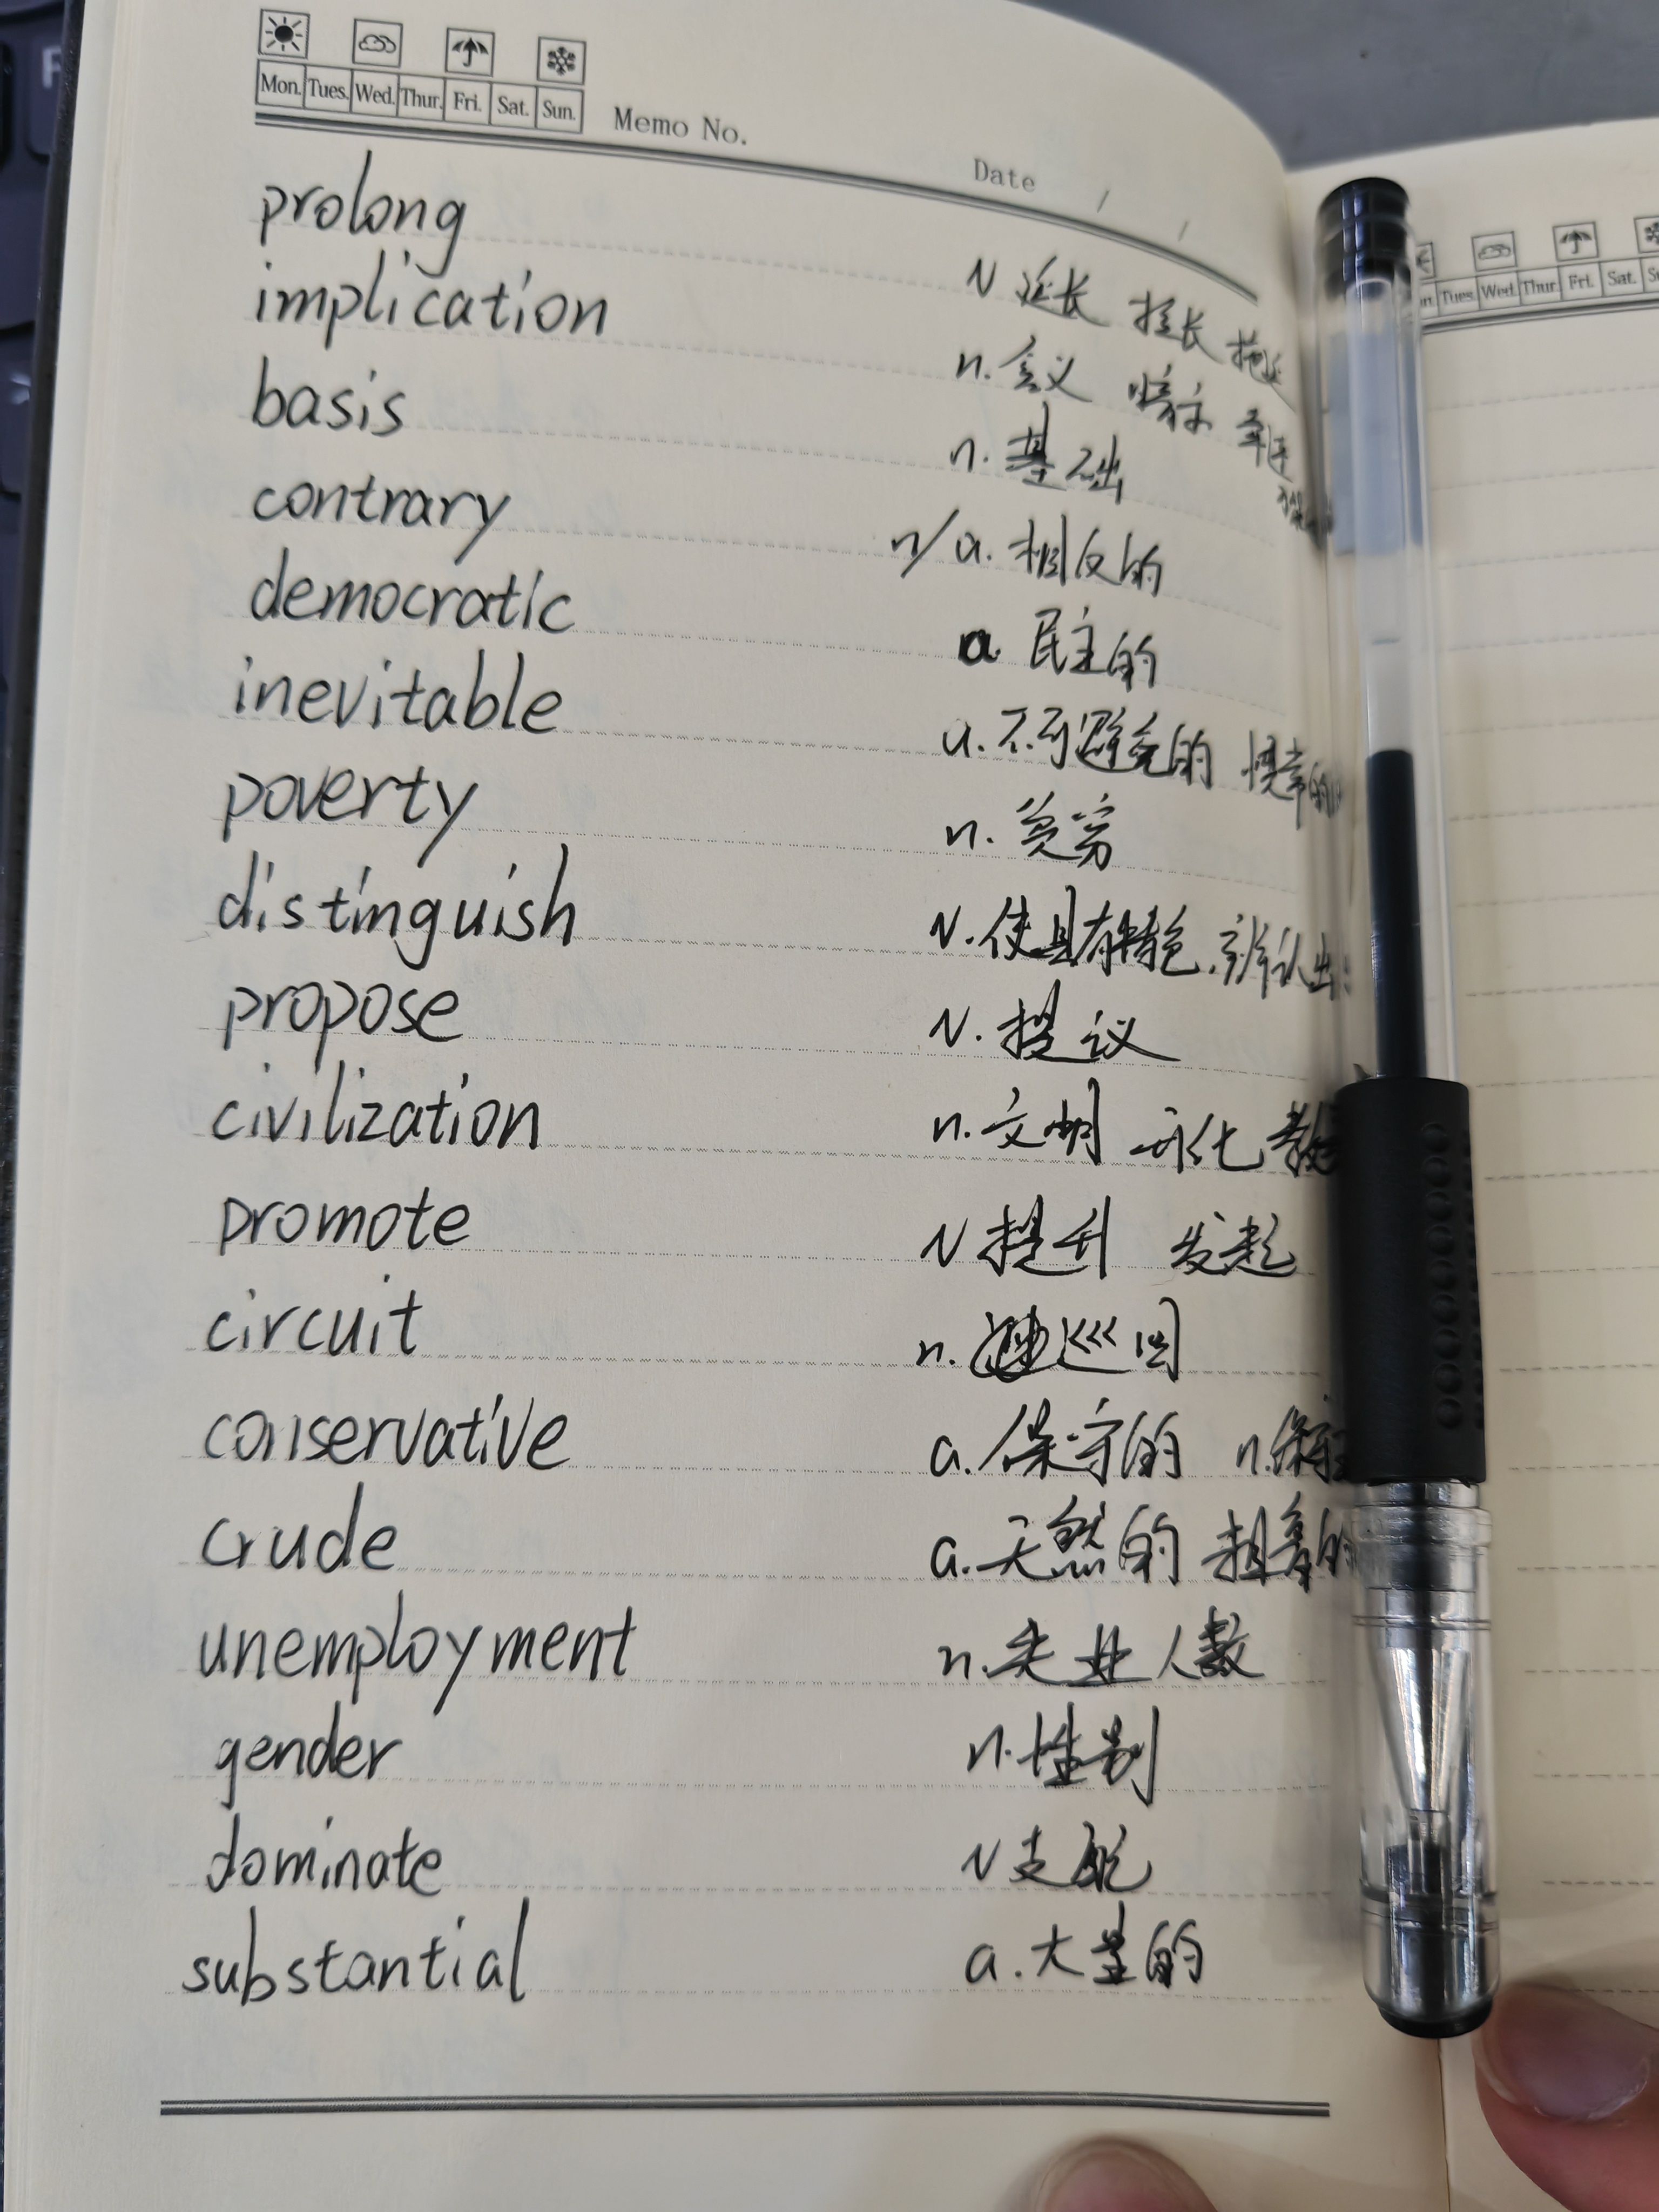 Mon. Tues. Wed. Thur. Fri. Sat. Sun. Memo No. Date / /
Tues. Wed. Thur. Fri. Sat.
prolong v 延长 拉长 拖延
implication n. 含义 暗示 牵连
basis n. 基础
contrary n/a. 相反的
democratic a. 民主的
inevitable a. 不可避免的 惯常的
poverty n. 贫穷
distinguish v. 使具有特色, 辨认出
propose v. 提议
civilization n. 文明 开化
promote v 提升 发起
circuit n. 巡回
conservative a. 保守的 n. 保守
crude a. 天然的 粗鲁的
unemployment n. 失业人数
gender n. 性别
dominate v 支配
substantial a. 大量的